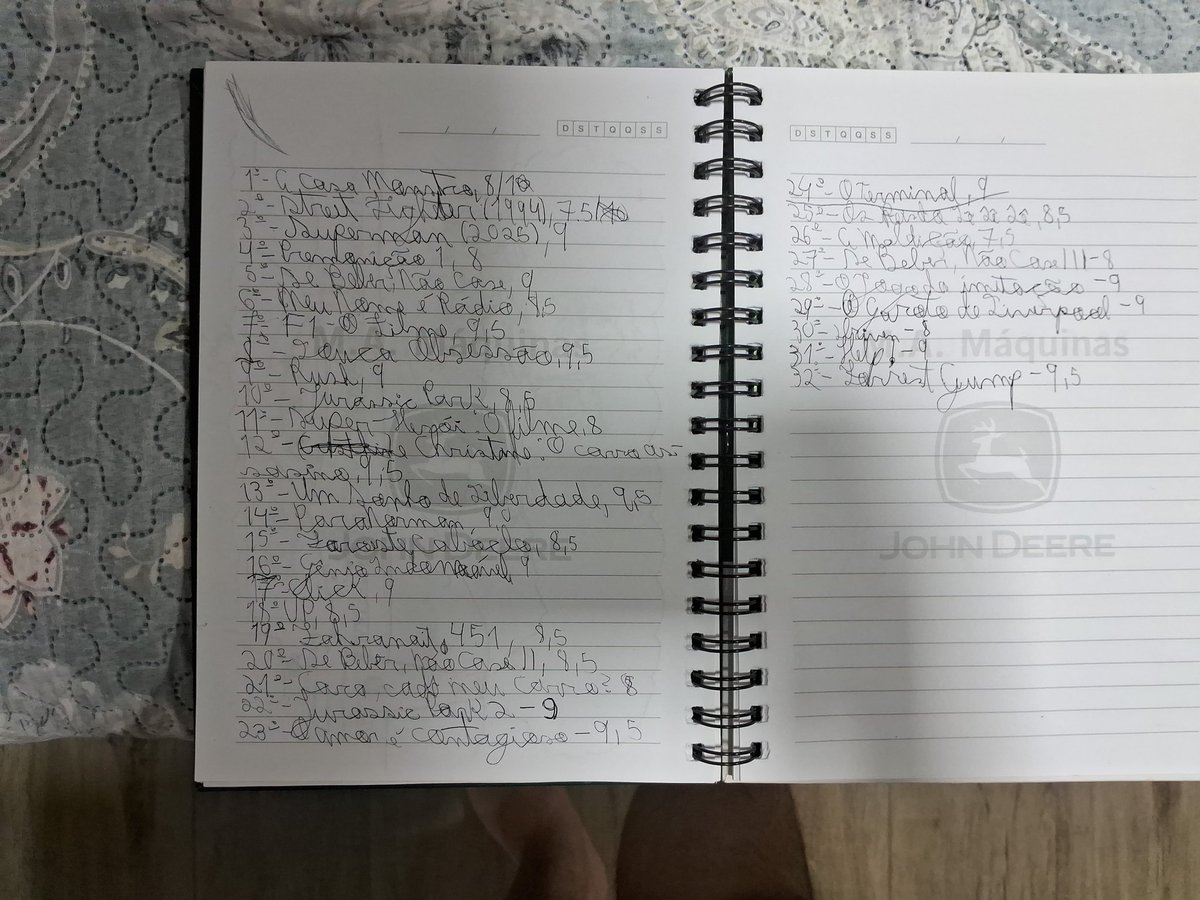 D S T Q Q S S
1º- A Casa Monstro, 8/10
2º- Street Fighter (1994), 7.5/
3º- Superman (2025), 9
4º- Premonição 1, 8
5º- Se Beber, Não Case, 9
6º- Meu Nome é Rádio, 9,5
7º- F1: O Filme, 9,5
8º- Louca Obsessão, 9,5
9º- Rush, 9
10º- Jurassic Park, 8,5
11º- Super-Herói: O filme, 8
12º- Christine: O carro as-
sasino, 9,5
13º- Um Sonho de Liberdade, 9,5
14º- ParaNorman, 9,0
15º- Faroeste Caboclo, 8,5
16º- Gênio Indomável, 9
17º- Click, 9
18º- UP, 8,5
19º- 451, 8,5
20º- Se Beber, não Case II, 8,5
21º- Cara, cadê meu carro? 8
22º- Jurassic Park 2 - 9
23º- O amor é contagioso - 9,5
D S T Q Q S S
24º- O Terminal, 9
25º- Os 8,5
26º- A Maldição, 7,5
27º- Se Beber, Não Case III - 8
28º- O Jogo da imitação - 9
29º- O Garoto de Liverpool - 9
30º- - 8
31º- Help! - 9
Máquinas
32º- Forrest Gump - 9,5
JOHN DEERE